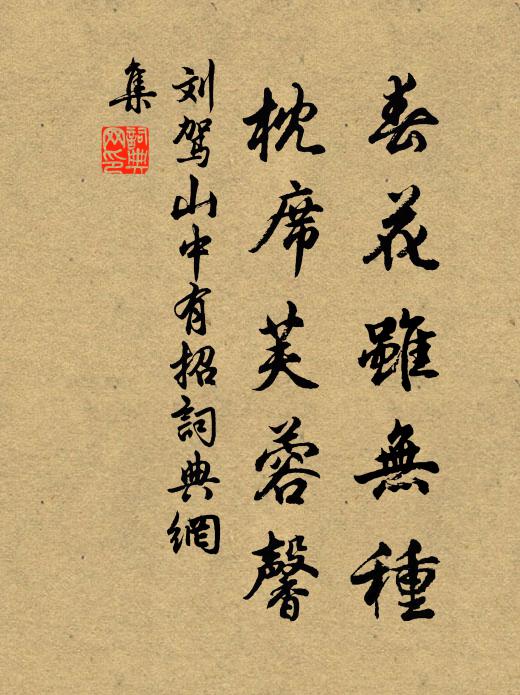 春花雖無種
枕席芙蓉馨
刘駕山中有招詞典網
集
詞典網印